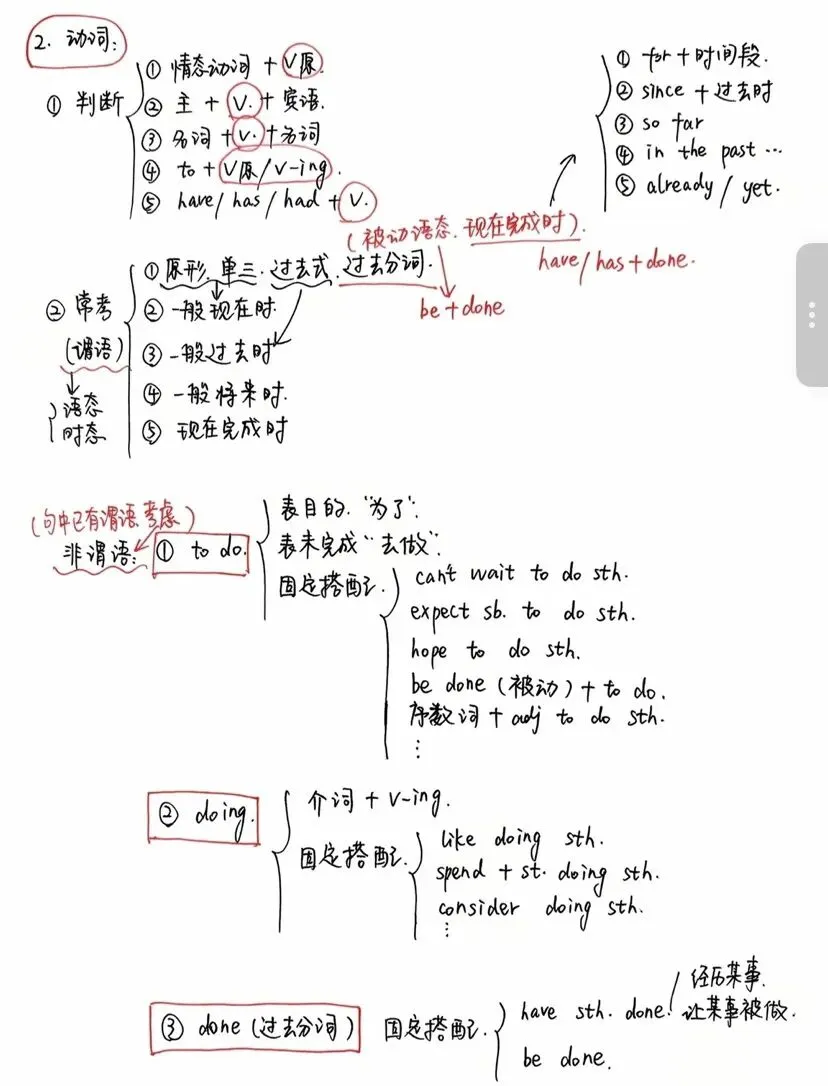 2. 动词:
① 判断
① 情态动词 + V原.
② 主 + V. + 宾语.
③ 名词 + v. + 名词
④ to + V原/V-ing.
⑤ have/has/had + V.
① for + 时间段.
② since + 过去时
③ so far
④ in the past ...
⑤ already / yet.
(被动语态. 现在完成时).
have/has + done.
be + done
② 常考
(谓语)
语态
时态
① 原形. 单三. 过去式. 过去分词.
② 一般现在时.
③ 一般过去时
④ 一般将来时.
⑤ 现在完成时
(句中已有谓语考虑)
非谓语:
① to do.
表目的. "为了".
表未完成 "去做".
固定搭配.
can't wait to do sth.
expect sb. to do sth.
hope to do sth.
be done (被动) + to do.
序数词 + adj to do sth.
...
② doing.
介词 + V-ing.
固定搭配.
like doing sth.
spend + st. doing sth.
consider doing sth.
...
③ done (过去分词)
固定搭配.
have sth. done.
经历某事.
让某事被做.
be done.